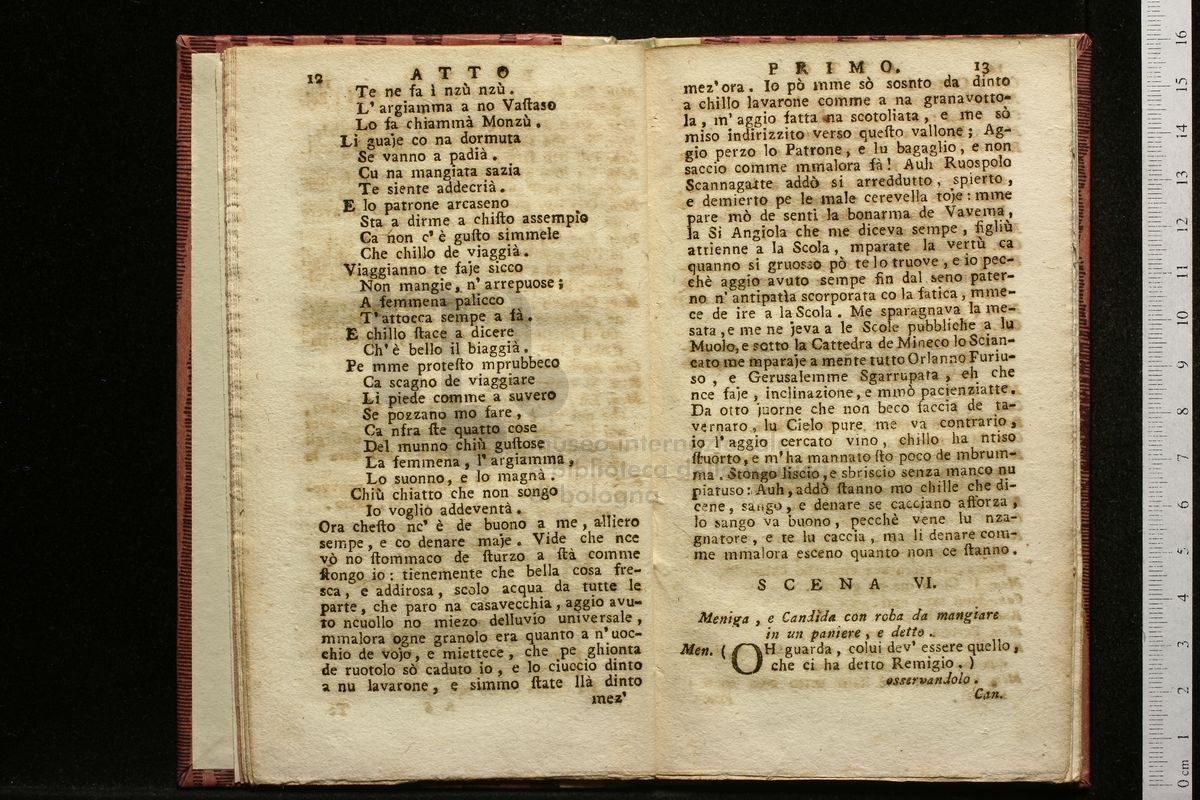 12 ATTO
Te ne fa ì nzù nzù.
L' argiamma a no Vaſtaso
Lo fa chiammà Monzù.
Li guaje co na dormuta
Se vanno a padià.
Cu na mangiata sazia
Te siente addecrià.
E lo patrone arcaseno
Sta a dirme a chiſto assempio
Ca non c' è guſto simmele
Che chillo de viaggià.
Viaggianno te faje sicco
Non mangie, n' arrepuose;
A femmena palicco
T' attocca sempe a fà.
E chillo ſtace a dicere
Ch' è bello il biaggià.
Pe mme proteſto mprubbeco
Ca scagno de viaggiare
Li piede comme a suvero
Se pozzano mo fare,
Ca nfra ſte quatto cose
Del munno chiù guſtose
La femmena, l' argiamma,
Lo suonno, e lo magnà.
Chiù chiatto che non songo
Io voglio addeventà.
Ora cheſto nc' è de buono a me, alliero
sempe, e co denare maje. Vide che nce
vò no ſtommaco de ſturzo a ſtà comme
ſtongo io: tienemente che bella cosa fre-
sca, e addirosa, scolo acqua da tutte le
parte, che paro na casavecchia, aggio avu-
to ncuollo no miezo delluvio universale,
mmalora ogne granolo era quanto a n' uoc-
chio de vojo, e miettece, che pe ghionta
de ruotolo sò caduto io, e lo ciuccio dinto
a nu lavarone, e simmo ſtate llà dinto
mez'
PRIMO. 13
mez' ora. Io pò mme sò sosnto da dinto
a chillo lavarone comme a na granavotto-
la, m' aggio fatta na scotoliata, e me sò
miso indirizzito verso queſto vallone; Ag-
gio perzo lo Patrone, e lu bagaglio, e non
saccio comme mmalora fà! Auh Ruospolo
Scannagatte addò si arreddutto, spierto,
e demierto pe le male cerevella toje: mme
pare mò de sentì la bonarma de Vavema,
la Si Angiola che me diceva sempe, figliù
attienne a la Scola, mparate la vertù ca
quanno si gruosso pò te lo truove, e io pec-
chè aggio avuto sempe fin dal seno pater-
no n' antipatìa scorporata co la fatica, mme-
ce de ire a la Scola. Me sparagnava la me-
sata, e me ne jeva a le Scole pubbliche a lu
Muolo, e sotto la Cattedra de Mineco lo Scian-
cato me mparaje a mente tutto Orlanno Furiu-
so, e Gerusalemme Sgarrupata, eh che
nce faje, inclinazione, e mmò pacienziatte.
Da otto juorne che non beco faccia de ta-
vernaro, lu Cielo pure me va contrario,
io l' aggio cercato vino, chillo ha ntiso
ſtuorto, e m' ha mannato ſto poco de mbrum-
ma. Stongo liscio, e sbriscio senza manco nu
piatuso: Auh, addò ſtanno mo chille che di-
cene, sango, e denare se cacciano afforza,
lo sango va buono, pecchè vene lu nza-
gnatore, e te lu caccia, ma li denare com-
me mmalora esceno quanto non ce ſtanno.
SCENA VI.
Meniga, e Candida con roba da mangiare
in un paniere, e detto.
Men. ( OH guarda, colui dev' essere quello,
che ci ha detto Remigio. )
osservandolo.
Can.
museo internazionale
biblioteca della musica
bologna
16
15
14
13
12
11
10
9
8
7
6
5
4
3
2
1
0 cm